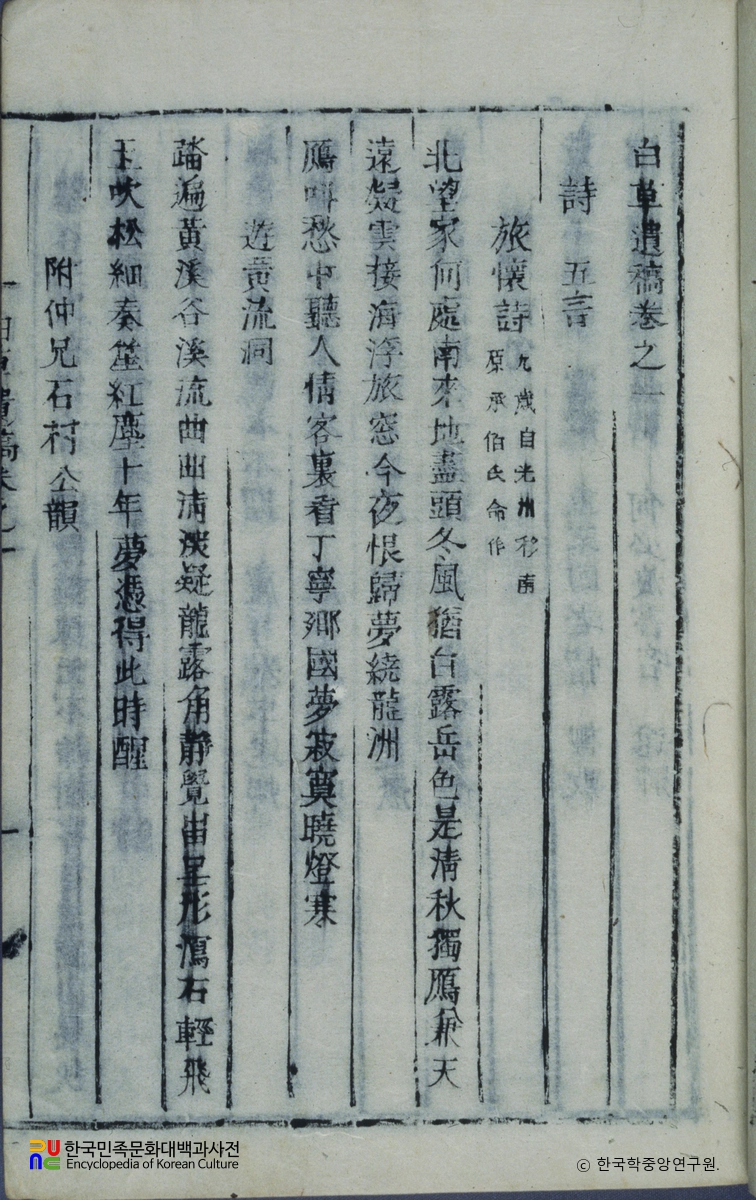 白草遺稿卷之一
詩 五言
旅懷詩
九歲自光州移南
原承伯氏命作
北望家何處南來地盡頭冬風猶白露岳色是淸秋獨鴈兼天
遠凝雲接海浮旅窓今夜恨歸夢繞龍洲
鴈叫愁中聽人情客裏看丁寧鄕國夢寂寞曉燈寒
遊黃流洞
踏遍黃溪谷溪流曲曲淸疑龍露角靜覺形瀉石輕飛
玉吹松細奏笙紅塵十年夢憑得此時醒
附仲兄石村公韻
한국민족문화대백과사전
Encyclopedia of Korean Culture
ⓒ 한국학중앙연구원.